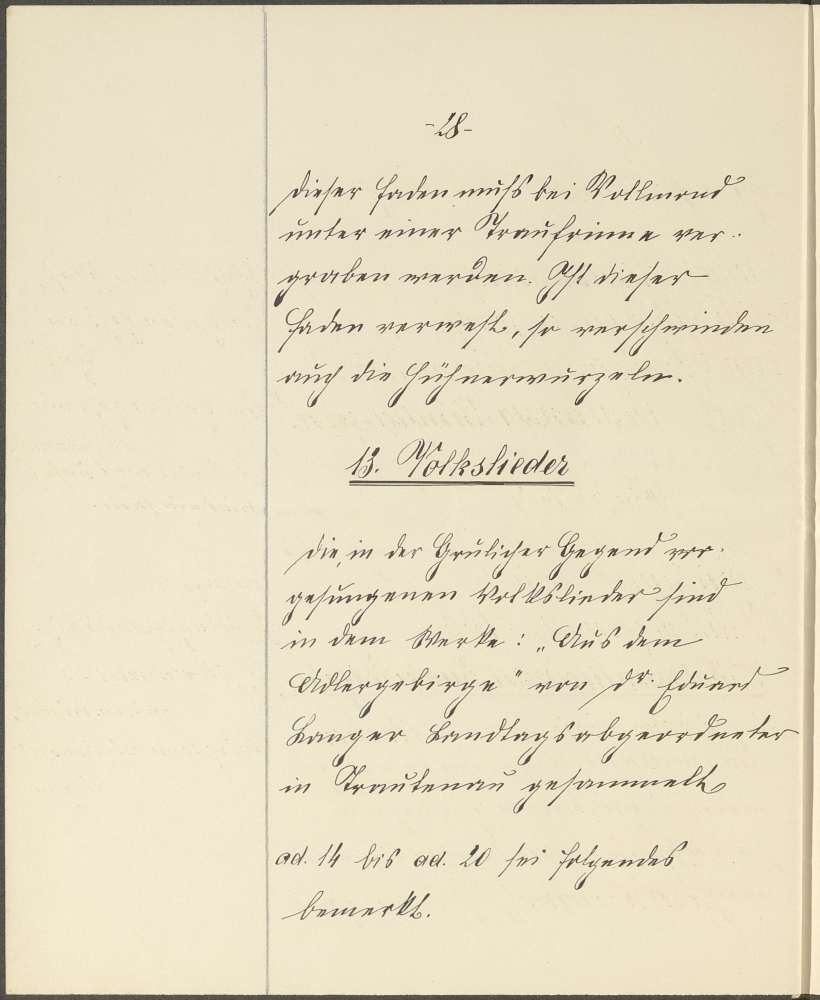 -28-
dieser Faden muß bei Vollmond
unter einer Traufrinne ver-
graben werden. Ist dieser
Faden verwest, so verschwinden
auch die Hühnerwurzeln.
13. Volkslieder
Die, in der Grulicher Gegend vor-
gesungenen Volkslieder sind
in dem Werke: „Aus dem
Adlergebirge" von Dr. Eduard
Langer Landtagsabgeordneter
in Trautenau gesammelt
ad. 14 bis ad. 20 sei folgendes
bemerkt.